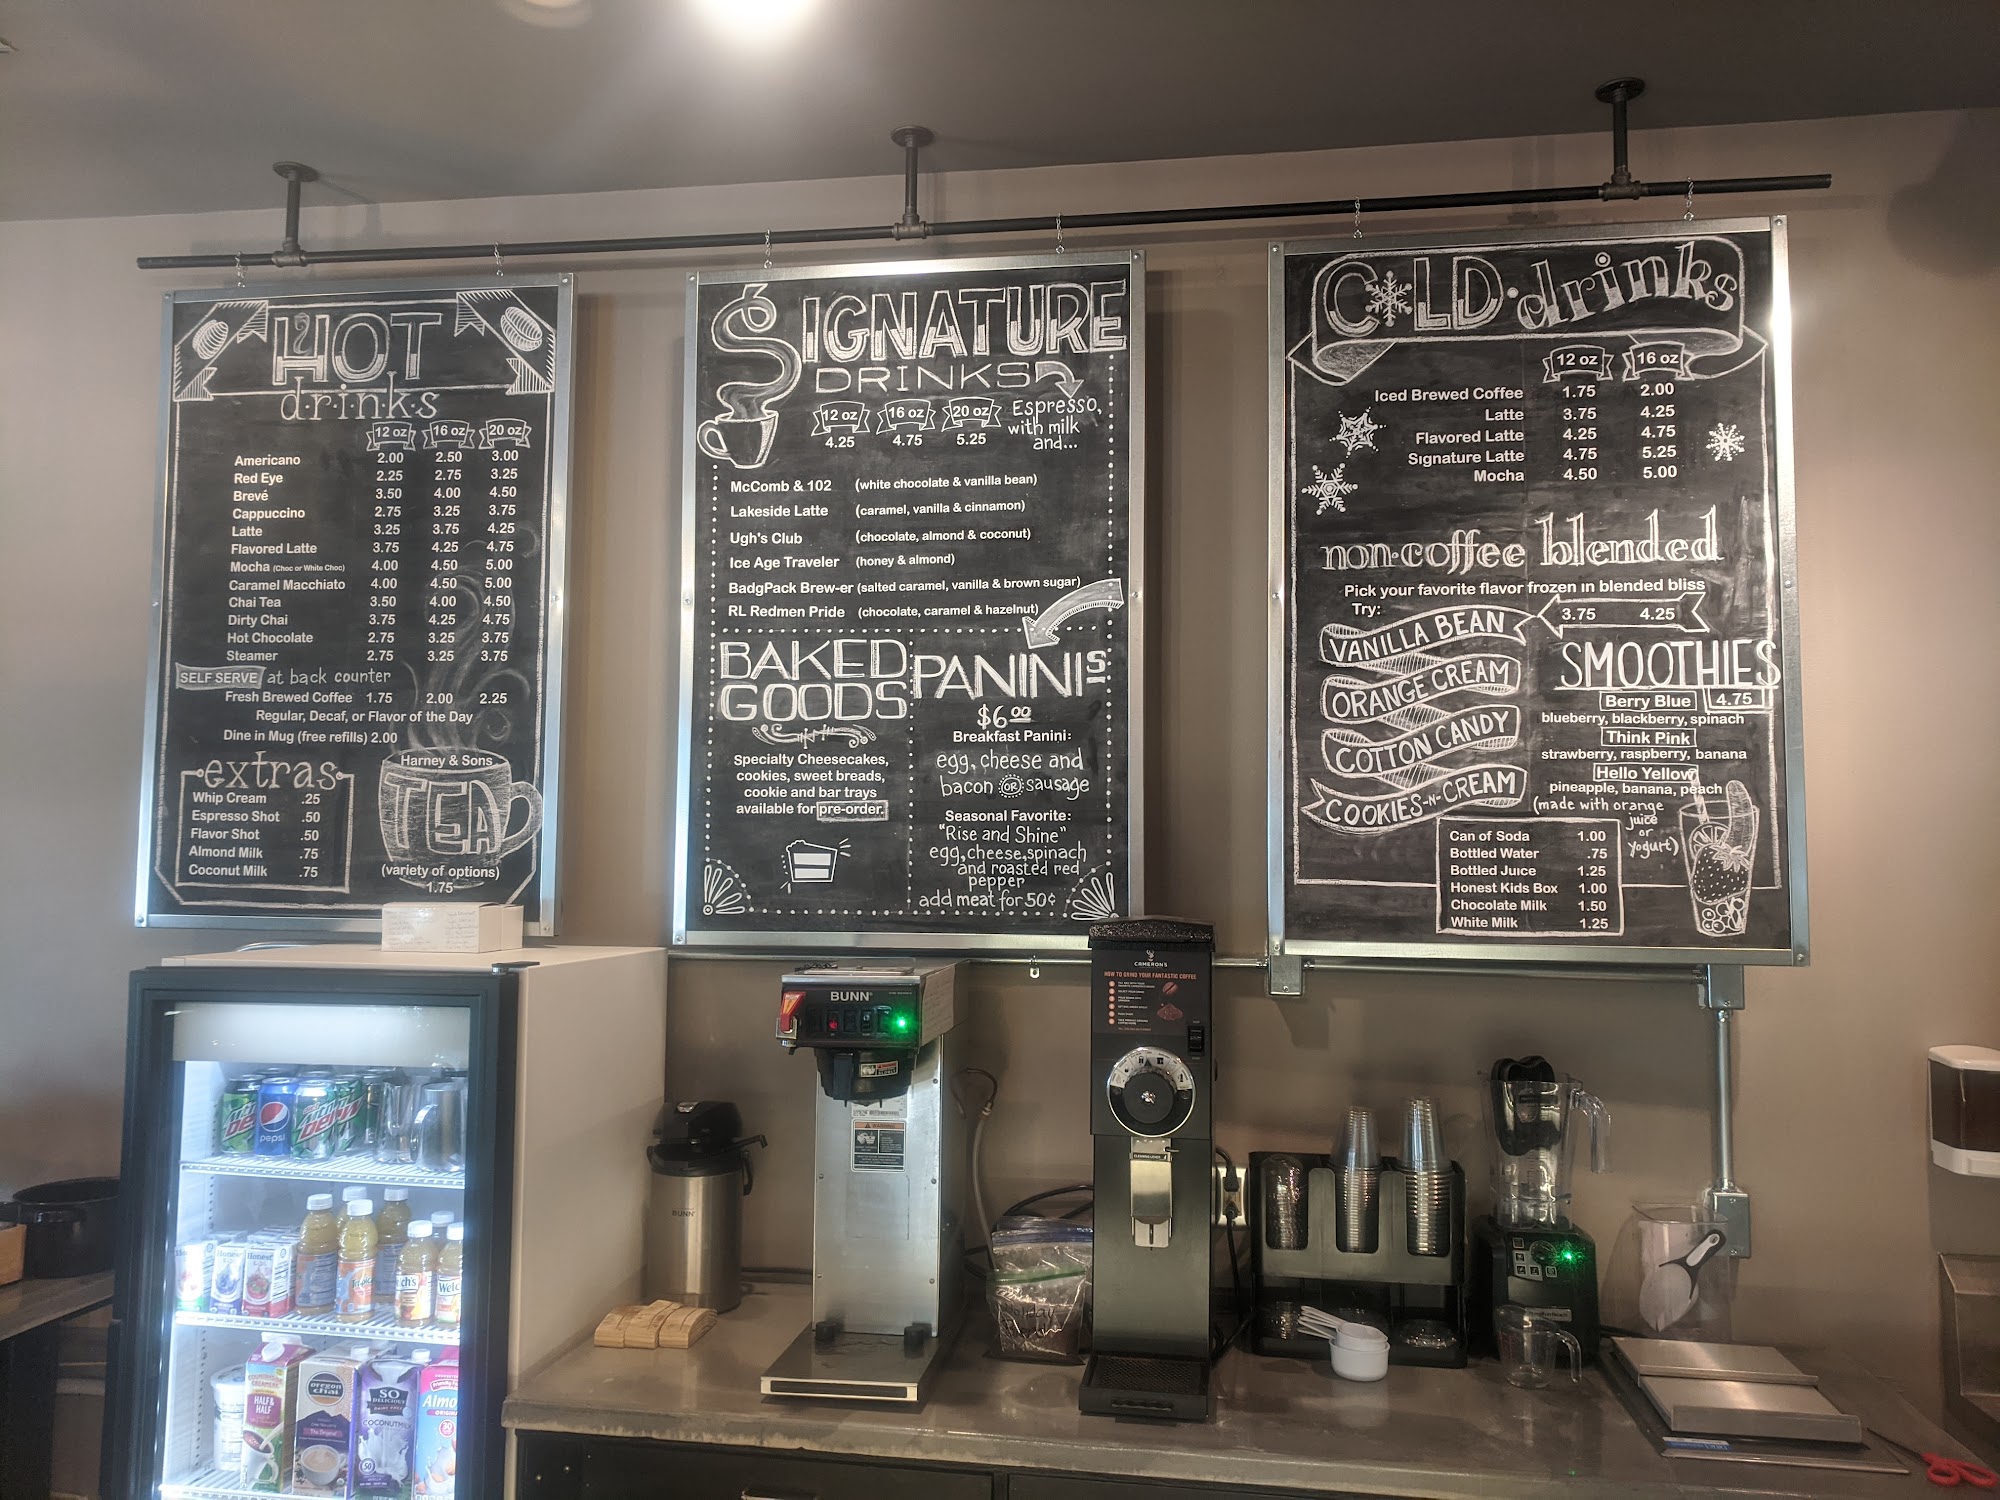 HOT
drinks
12 oz 16 oz 20 oz
Americano 2.00 2.50 3.00
Red Eye 2.25 2.75 3.25
Brevé 3.50 4.00 4.50
Cappuccino 2.75 3.25 3.75
Latte 3.25 3.75 4.25
Flavored Latte 3.75 4.25 4.75
Mocha (Choc or White Choc) 4.00 4.50 5.00
Caramel Macchiato 4.00 4.50 5.00
Chai Tea 3.50 4.00 4.50
Dirty Chai 3.75 4.25 4.75
Hot Chocolate 2.75 3.25 3.75
Steamer 2.75 3.25 3.75
SELF SERVE at back counter
Fresh Brewed Coffee 1.75 2.00 2.25
Regular, Decaf, or Flavor of the Day
Dine in Mug (free refills) 2.00
extras
Whip Cream .25
Espresso Shot .50
Flavor Shot .50
Almond Milk .75
Coconut Milk .75
Harney & Sons
TEA
(variety of options)
1.75
SIGNATURE
DRINKS
12 oz 16 oz 20 oz
4.25 4.75 5.25
Espresso,
with milk
and...
McComb & 102 (white chocolate & vanilla bean)
Lakeside Latte (caramel, vanilla & cinnamon)
Ugh's Club (chocolate, almond & coconut)
Ice Age Traveler (honey & almond)
BadgPack Brew-er (salted caramel, vanilla & brown sugar)
RL Redmen Pride (chocolate, caramel & hazelnut)
BAKED
GOODS
Specialty Cheesecakes,
cookies, sweet breads,
cookie and bar trays
available for pre-order.
PANINIs
$6.00
Breakfast Panini:
egg, cheese and
bacon OR sausage
Seasonal Favorite:
"Rise and Shine"
egg, cheese, spinach
and roasted red
pepper
add meat for 50¢
COLD drinks
12 oz 16 oz
Iced Brewed Coffee 1.75 2.00
Latte 3.75 4.25
Flavored Latte 4.25 4.75
Signature Latte 4.75 5.25
Mocha 4.50 5.00
non-coffee blended
Pick your favorite flavor frozen in blended bliss
Try: 3.75 4.25
VANILLA BEAN
ORANGE CREAM
COTTON CANDY
COOKIES-N-CREAM
SMOOTHIES
Berry Blue 4.75
blueberry, blackberry, spinach
Think Pink
strawberry, raspberry, banana
Hello Yellow
pineapple, banana, peach
(made with orange
juice
or
yogurt)
Can of Soda 1.00
Bottled Water .75
Bottled Juice 1.25
Honest Kids Box 1.00
Chocolate Milk 1.50
White Milk 1.25
BUNN
CAMERON'S
HOW TO GRIND YOUR FANTASTIC COFFEE
WARNING
BUNN
pepsi
Honest
Honest
HALF &
HALF
oregon
chai
The Original
SO
DELICIOUS
COCONUTMILK
Almo
ORIGINAL